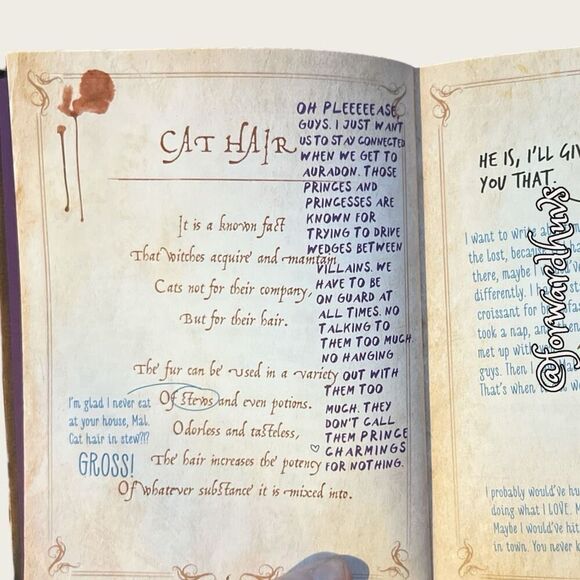 CAT HAIR
It is a known fact
That witches acquire and maintain
Cats not for their company,
But for their hair.
The fur can be used in a variety
Of stews and even potions.
Odorless and tasteless,
The hair increases the potency
Of whatever substance it is mixed into.
OH PLEEEEEASE
GUYS. I JUST WANT
US TO STAY CONNECTED
WHEN WE GET TO
AURADON. THOSE
PRINCES AND
PRINCESSES ARE
KNOWN FOR
TRYING TO DRIVE
WEDGES BETWEEN
VILLAINS. WE
HAVE TO BE
ON GUARD AT
ALL TIMES. NO
TALKING TO
THEM TOO MUCH.
NO HANGING
OUT WITH
THEM TOO
MUCH. THEY
DON'T CALL
THEM PRINCE
CHARMINGS
FOR NOTHING.
I'm glad I never eat
at your house, Mal.
Cat hair in stew?!?
GROSS!
HE IS, I'LL
YOU THAT.
I want to write
the lost,
there, maybe I
differently. I
croissant for
took a nap, and
met up with
guys. Then I
That's when
@forwardhuvs
I probably would've
doing what I LOVE.
Maybe I would've hit
in town. You never